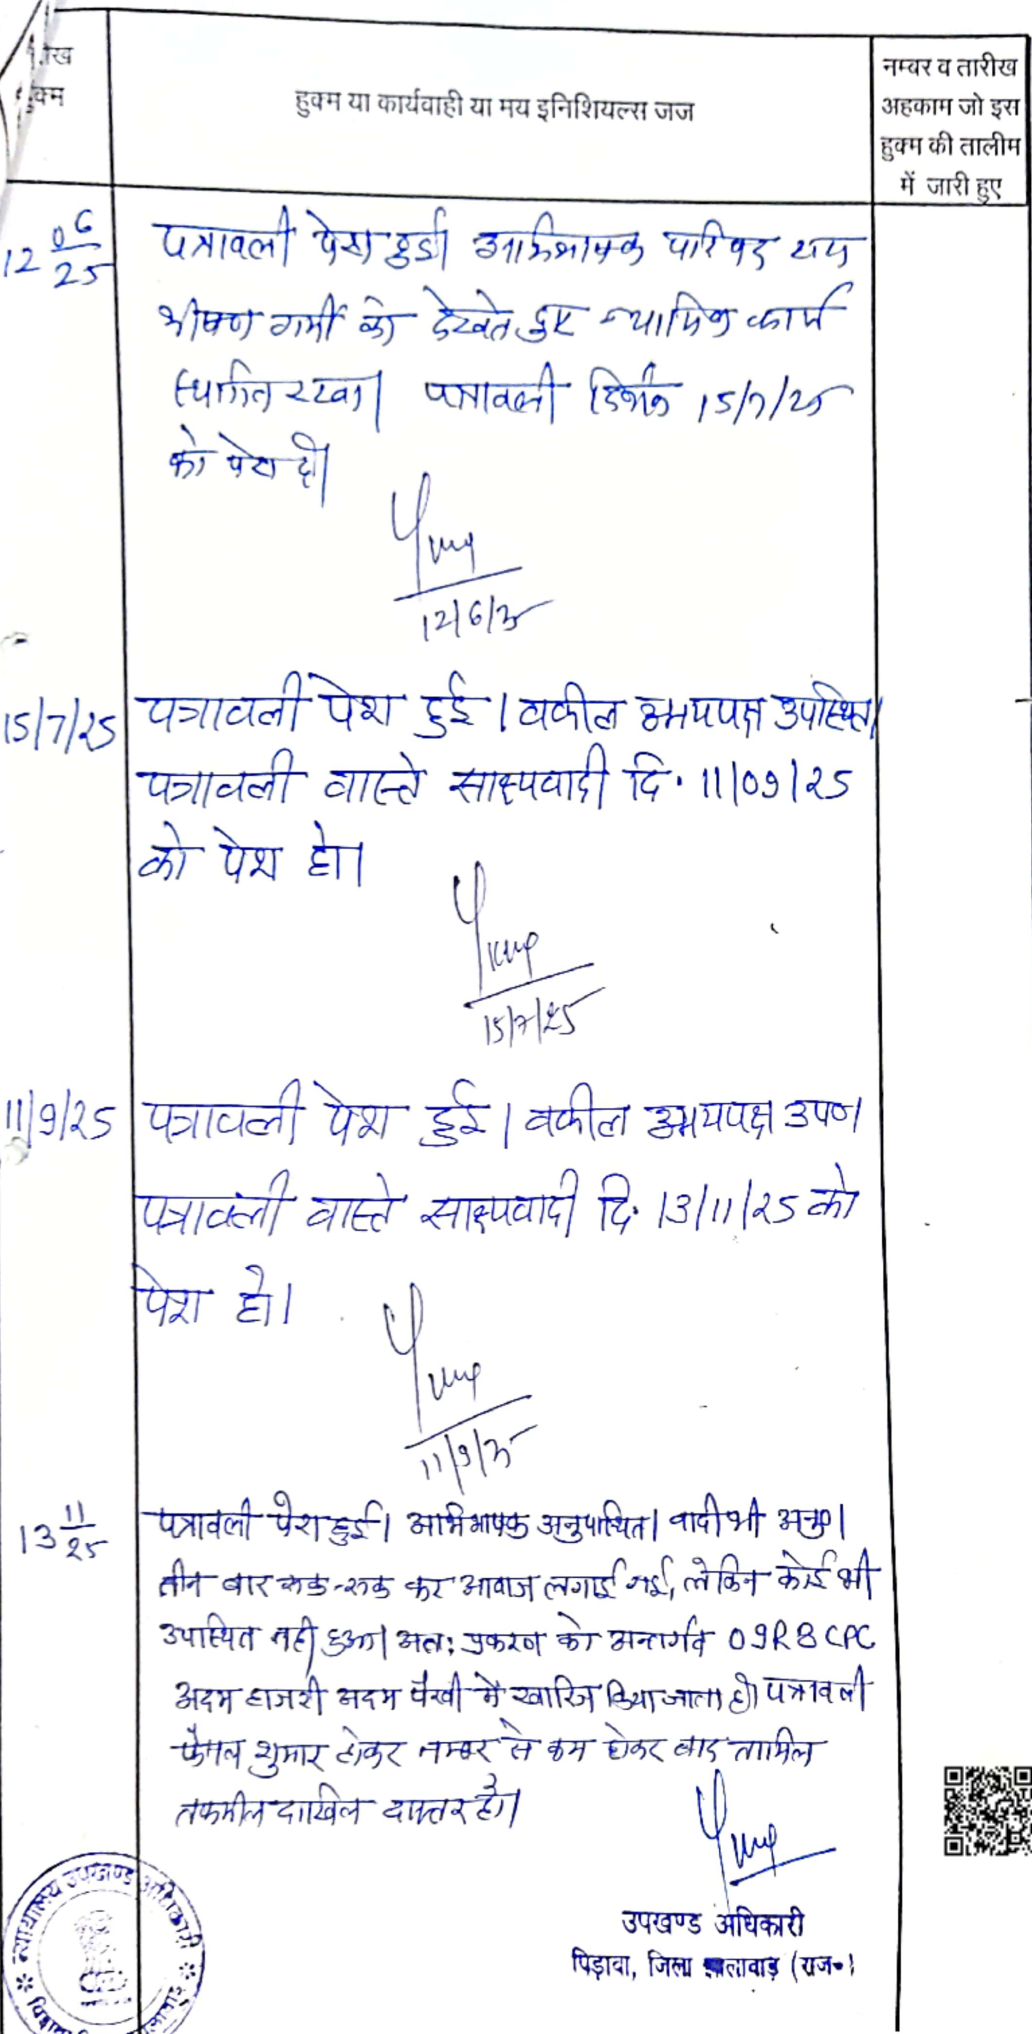 हुक्म या कार्यवाही या मय इनिशियल्स जज
नम्बर व तारीख
अहकाम जो इस
हुक्म की तालीम
में जारी हुए
12 06/25
पत्रावली पेश हुई। अभिभाषक परिषद द्वारा
भीषण गर्मी को देखते हुए न्यायिक कार्य
स्थगित रखा। पत्रावली दिनांक 15/7/25
को पेश हो।
12/6/25
15/7/25
पत्रावली पेश हुई। वकील उभयपक्ष उपस्थित।
पत्रावली वास्ते साक्ष्यवादी दि. 11/09/25
को पेश हो।
15/7/25
11/9/25
पत्रावली पेश हुई। वकील उभयपक्ष उप०।
पत्रावली वास्ते साक्ष्यवादी दि. 13/11/25 को
पेश हो।
11/9/25
13 11/25
पत्रावली पेश हुई। अभिभाषक अनुपस्थित। वादी भी अनु०।
तीन बार रूक-रूक कर आवाज लगाई गई, लेकिन कोई भी
उपस्थित नही हुआ। अतः प्रकरण को अन्तर्गत O9R8 CPC
अदम हाजरी अदम पैरवी में खारिज किया जाता है। पत्रावली
फैसल शुमार होकर नम्बर से कम होकर बाद तामिल
तकमील दाखिल दफ्तर हो।
उपखण्ड अधिकारी
पिड़ावा, जिला झालावाड़ (राज०)
न्यायालय उपखण्ड अधिकारी